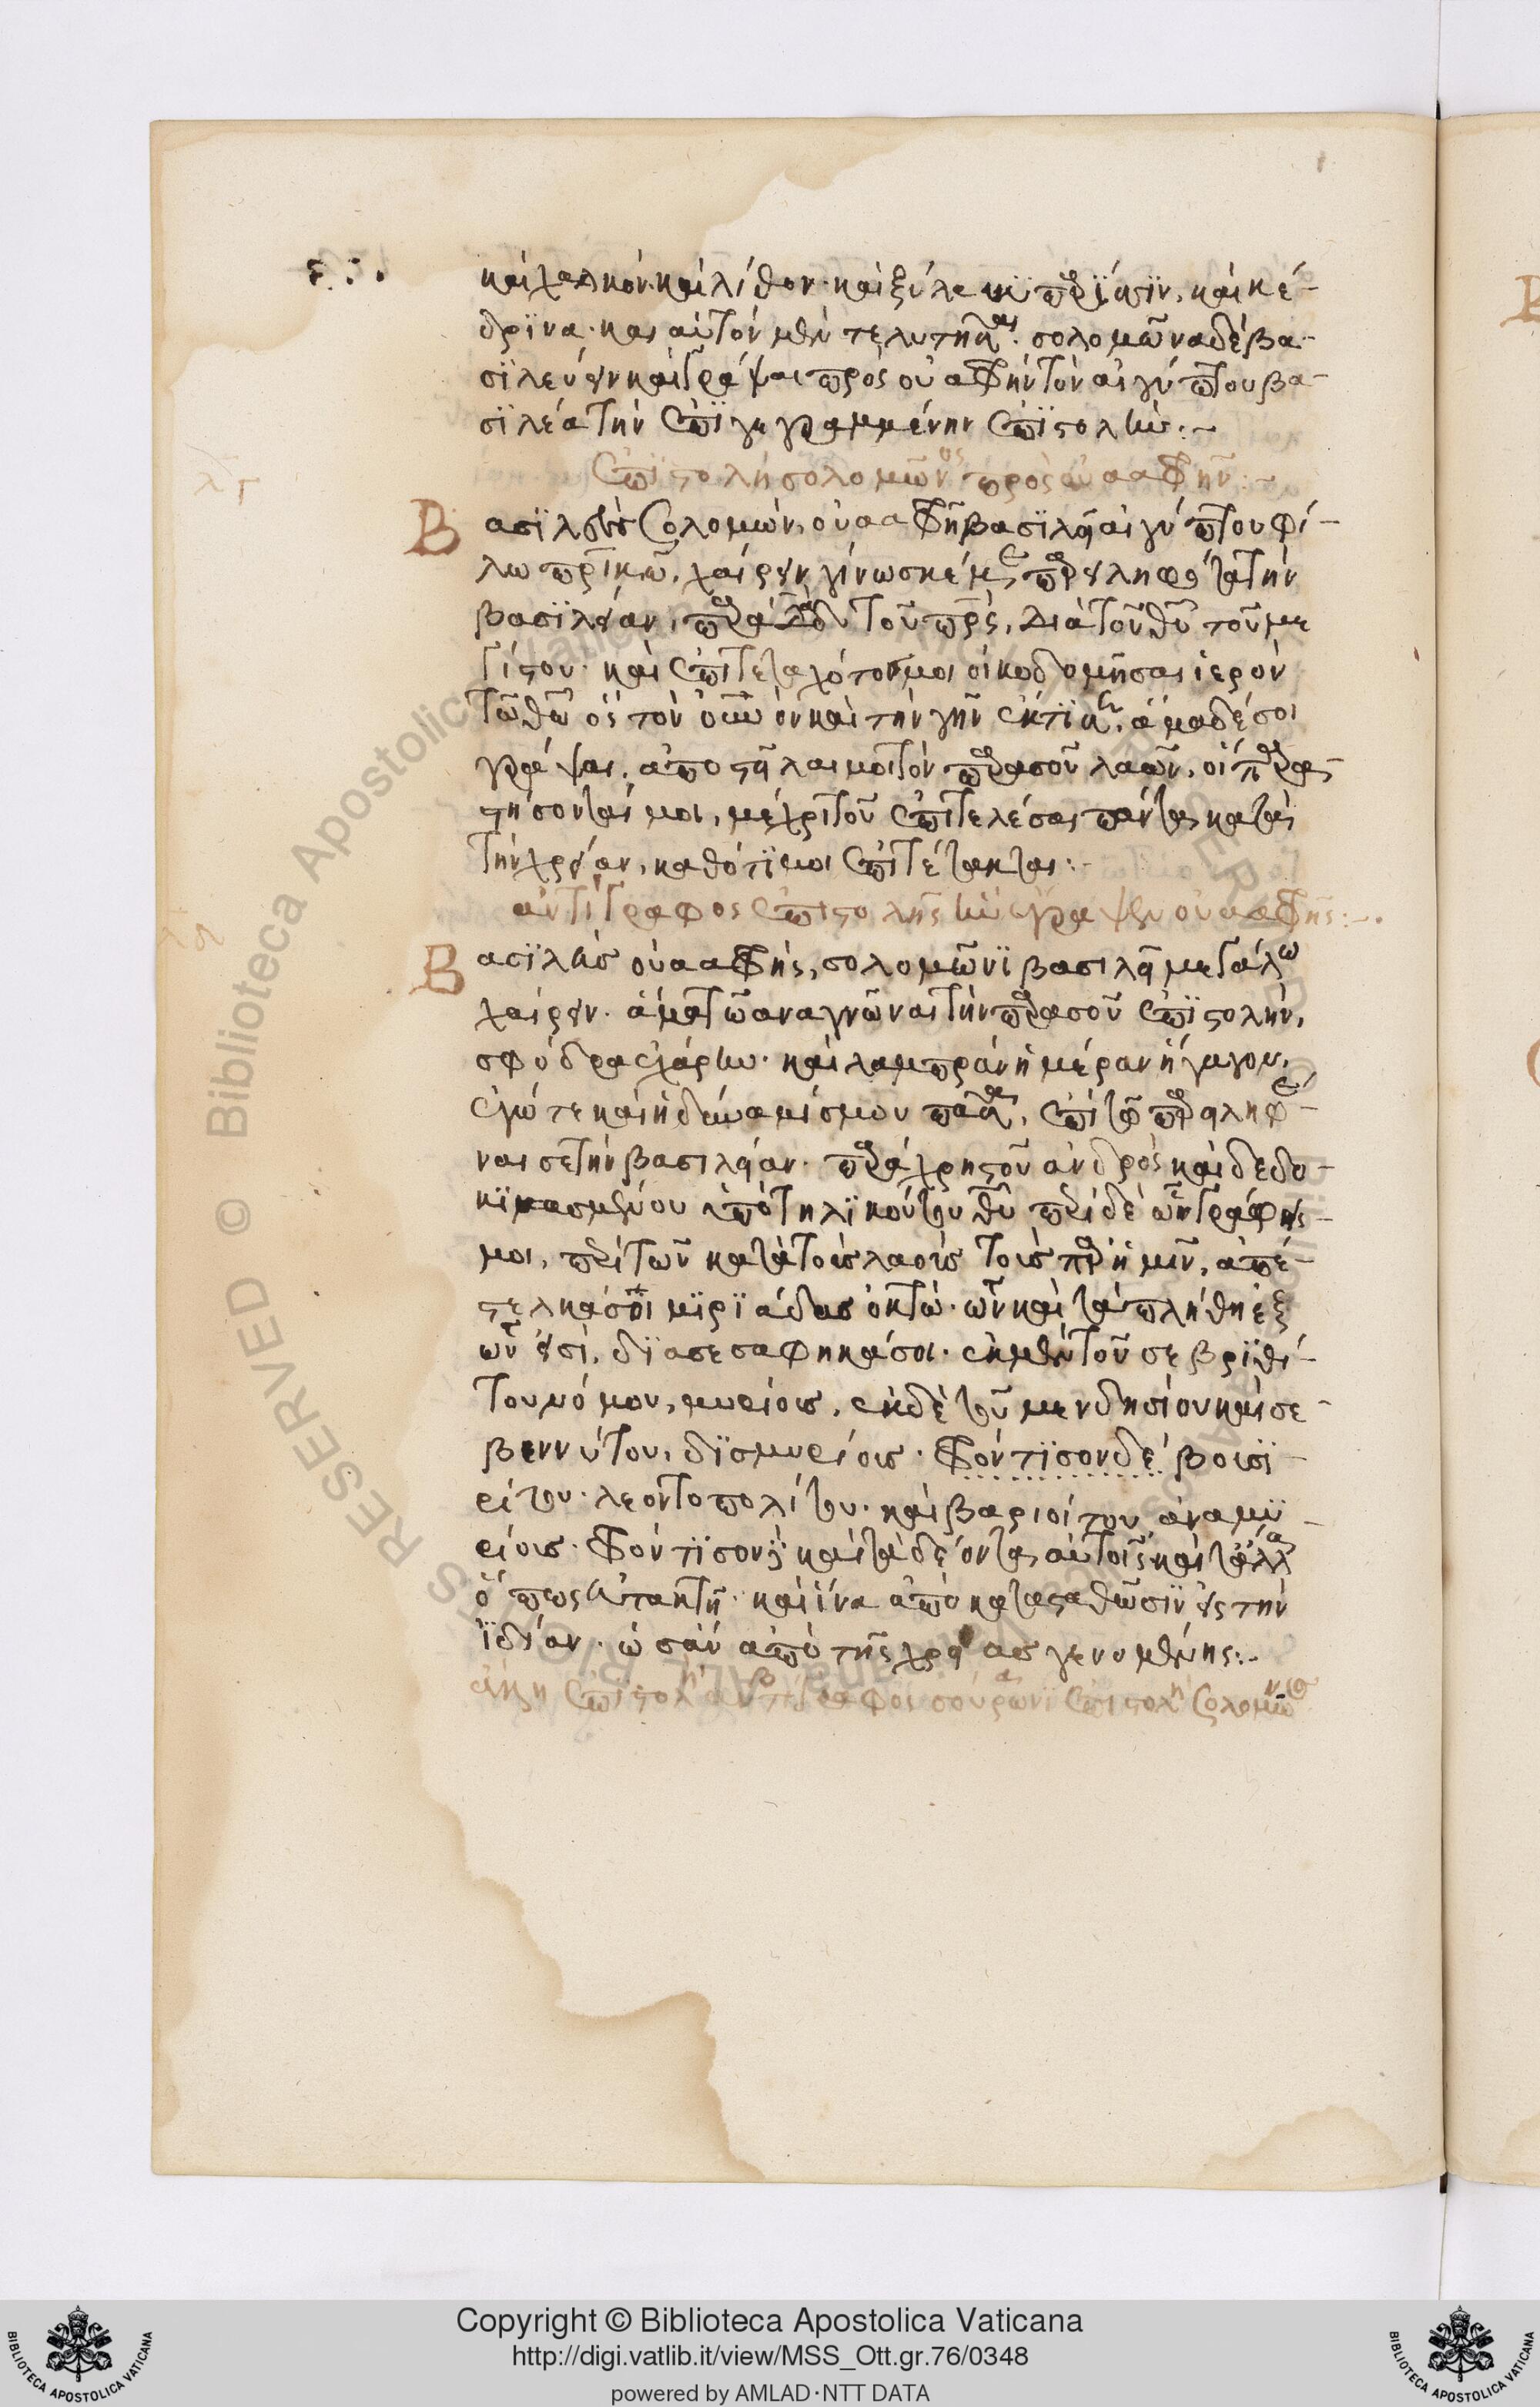 καὶ χαλκὸν. καὶ λίθον· καὶ ξύλα κϋπαρΐσϊν, καὶ κέ-
δρϊνα· και αὐτὸν μὲν τελευτῆσαι· σολομῶνα δὲ βα-
σϊλεύειν καὶ γράψαι πρὸς οὐαφρὴν τὸν αἰγύπτου βα-
σϊλέα τὴν ἐπϊγεγραμμένην ἐπϊστολὴν:~
λγ
ἐπϊστολὴ σολομῶνος πρὸς οὐααφρῆν:~
Βασϊλεὺς Σολομὼν, οὐααφρῆ βασϊλεῖ αἰγύπτου φί-
λω πρϊκῶ, χαίρειν, γίνωσκέ με παρειληφότα τὴν
βασϊλείαν, παρὰ δαδ τοῦ πρς, διὰ τοῦ θυ τοῦ με
γίστου· καὶ ἐπιτεταχότος μοι οἰκοδομῆσαι ἱερὸν
τῶ θῶ ὃς τὸν οὐνον καὶ τὴν γῆν ἔκτϊσεν, ἅμα δέ σοι
γράψαι, ἀποστεῖλαι μοι τὸν παρὰ σοῦ λαῶν, οἳ παρασ
τήσονταί μοι, μέχρι τοῦ ἐπιτελέσαι πάντα κατὰ
τὴν χρείαν, καθότϊ μοι ἐπιτέτακται:~
λδ
ἀντίγραφος ἐπιστολῆς ἣν ἔγραψεν οὐααφρῆς:~.
Βασϊλεὺς οὐααφρὴς, σολομῶνϊ βασιλεῖ μεγάλω
χαίρειν. ἅμα τῶ αναγνῶναι τὴν παρὰ σοῦ ἐπϊστολὴν,
σφόδρα ἐχάρην· καὶ λαμπρὰν ἡμέραν ἤγαγον,
ἐγώ τε καὶ ἡ δύναμίς μου πᾶσα, ἐπὶ τῶ παρειληφέ-
ναι σε τὴν βασιλείαν· παρὰ χρηστοῦ ἀνδρὸς καὶ δεδο-
κϊμασμένου ὑπὸ τηλϊκούτου θυ περὶ δὲ ὧν γράφεις
μοι, περὶ τῶν κατὰ τοὺς λαοὺς τοὺς παρ' ἡμῖν, ἀπέ-
σταλκά σοι μϊρϊάδας ὀκτώ· ὧν καὶ τὰ πλήθη ἐξ
ὧν εἰσὶ, δϊασεσάφηκά σοι· ἐκ μὲν τοῦ σεβρϊθί-
του νόμου, μυρίους, ἐκ δὲ τοῦ μενδησίου καὶ σε-
βεννύτου, δϊσμυρίους· φρόντϊσον δὲ βουσϊ-
ρίτου· λεοντοπολίτου· καὶ βαριοίτου ἀνα μϋ-
ρίους· φρόντϊσον καὶ τὰ δέοντα αὐτοῖς καὶ τἄλλα
ὅπως εὐτακτῆ· καὶ ἵνα ἀποκατασταθῶσϊν εἰς τὴν
ϊδίαν· ὡς ἂν ἀπὸ τῆς χρείας γενομένης:~